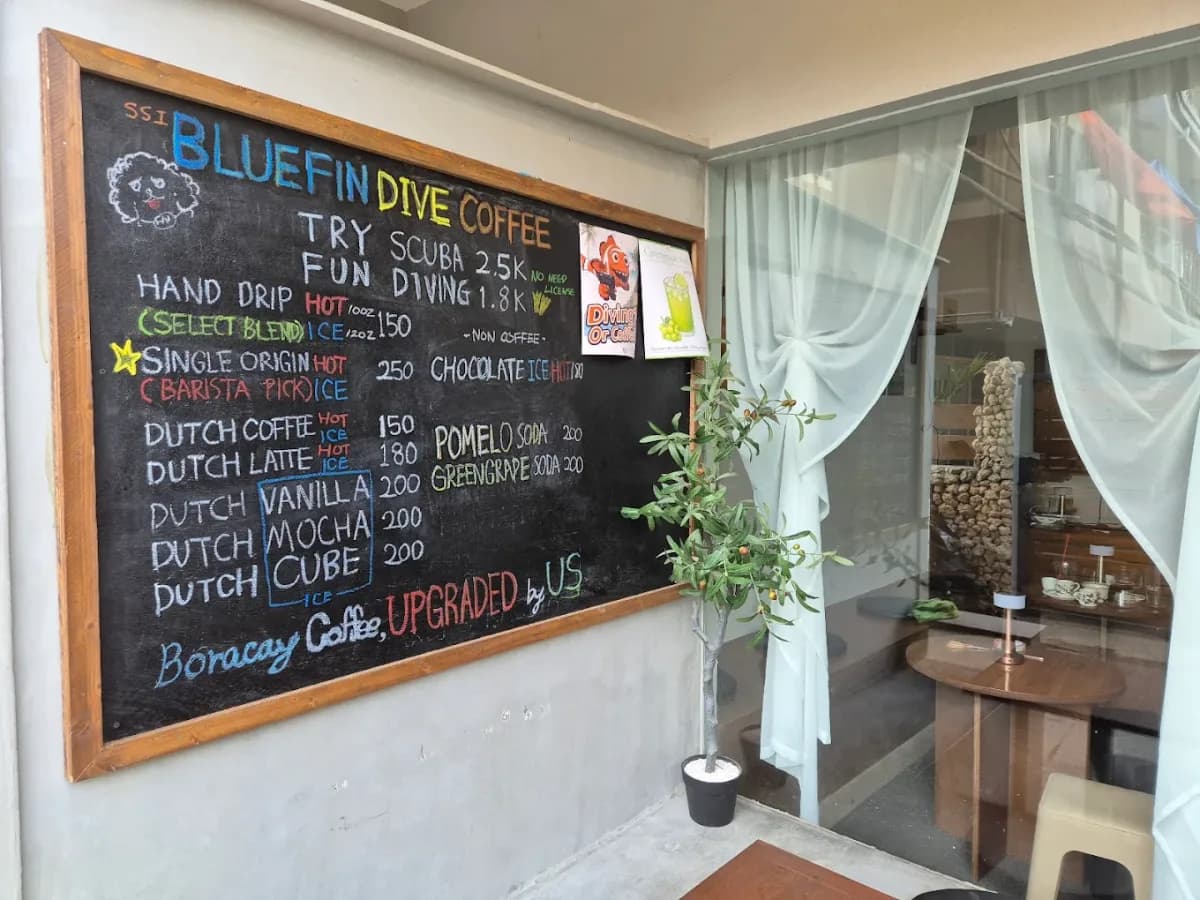 SSI BLUEFIN DIVE COFFEE
TRY SCUBA 2.5K
FUN DIVING 1.8K
NO NEED
LICENSE
HAND DRIP HOT 10OZ
(SELECT BLEND) ICE 12OZ 150
SINGLE ORIGIN HOT 250
(BARISTA PICK) ICE
DUTCH COFFEE HOT ICE 150
DUTCH LATTE HOT ICE 180
DUTCH VANILLA 200
DUTCH MOCHA 200
DUTCH CUBE 200
ICE
-NON COFFEE-
CHOCOLATE ICE HOT
POMELO SODA 200
GREENGRAPE SODA 200
Boracay Coffee, UPGRADED by US
Diving
Or Coffee